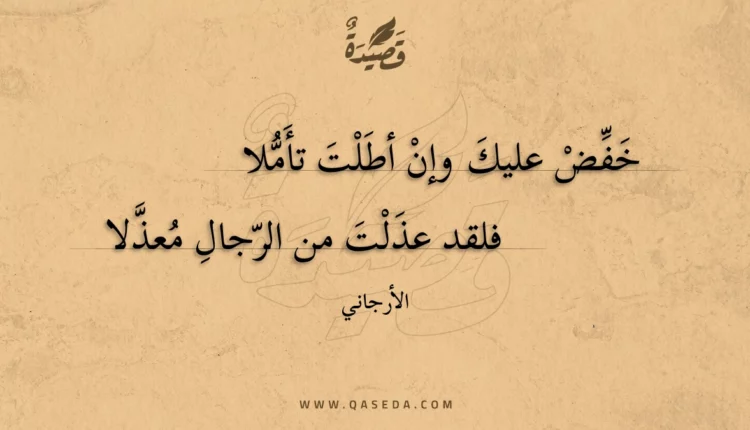 قَصِيدَةٌ
خَفِّضْ عليكَ وإنْ أطَلْتَ تأَمُّلا
فلقد عذَلْتَ من الرّجالِ مُعذَّلا
الأرجاني
WWW.QASEDA.COM